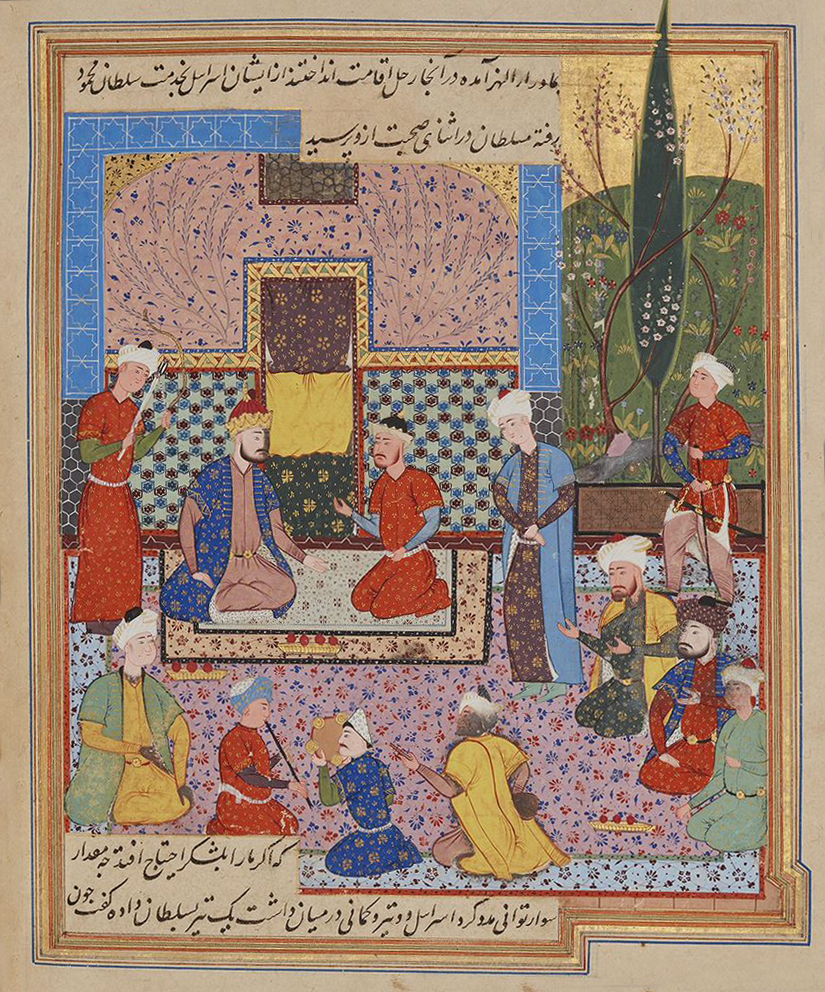 بماورار النهر آمده در آنجا رحل اقامت انداختند از ایشان اسراسل بخدمت سلطان محمود
رفته سلطان در اثنای صحبت ازو پرسید
که اگر ما را بلشکر احتیاج افتد چه مقدار
سوار توانی مدد کرد اسراسل دو تیر و کمانی در میان داشت یک تیر بسلطان داده گفت چون